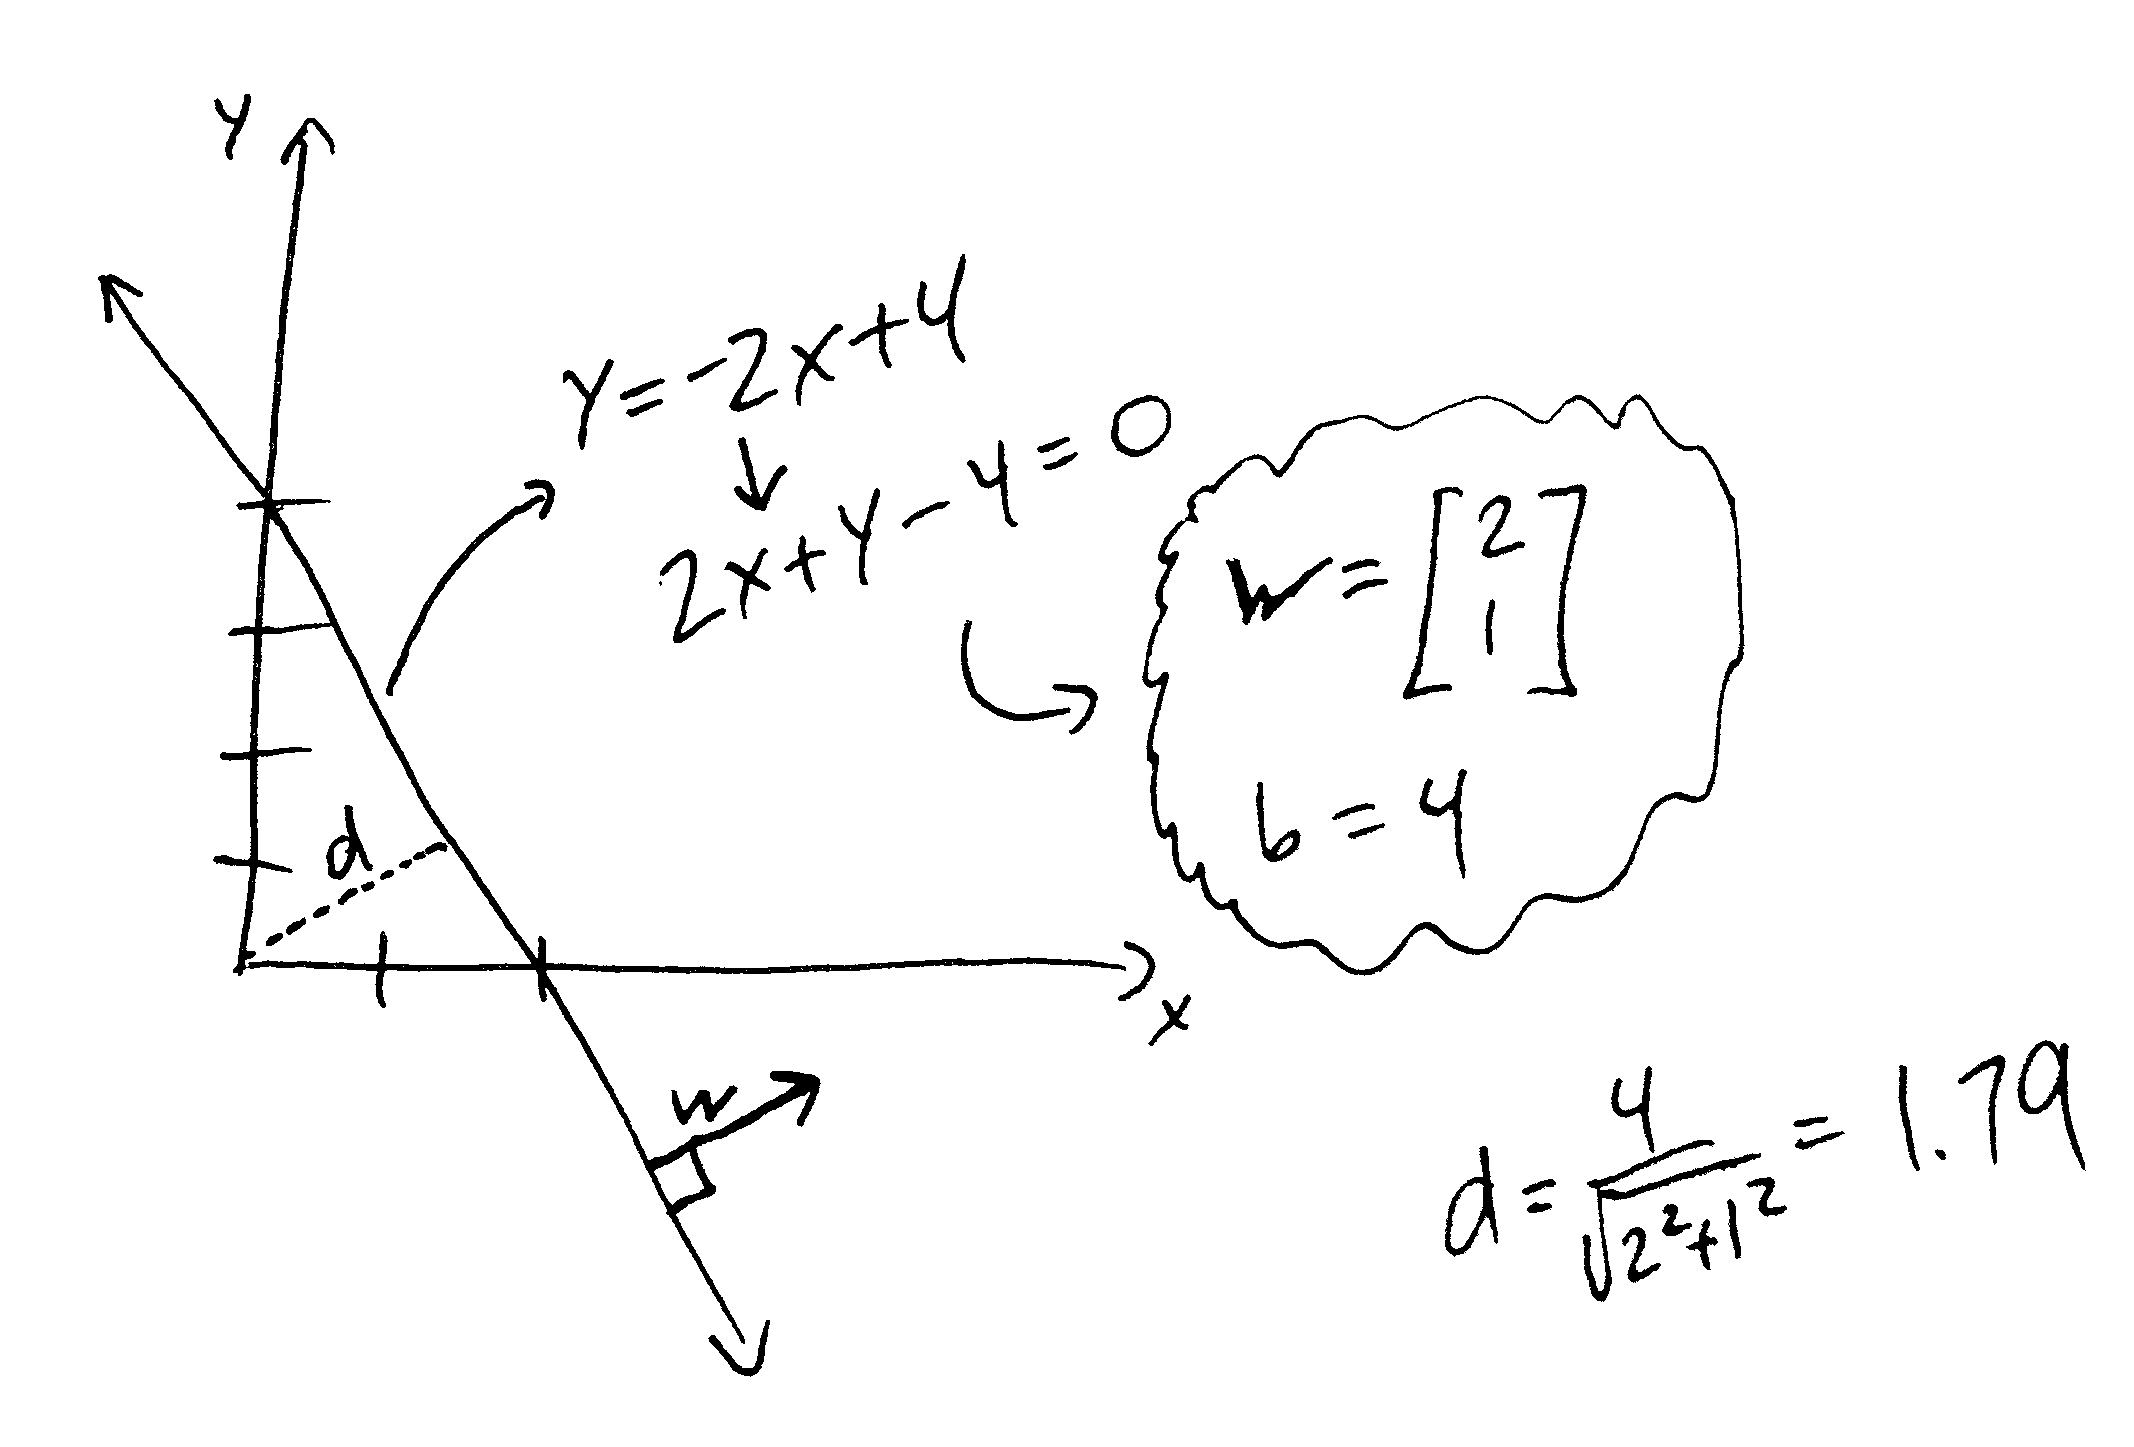 y
y=-2x+4
↓
2x+y-4=0
w=[2
1]
b=4
d
x
w
d=4/√2²+1²=1.79